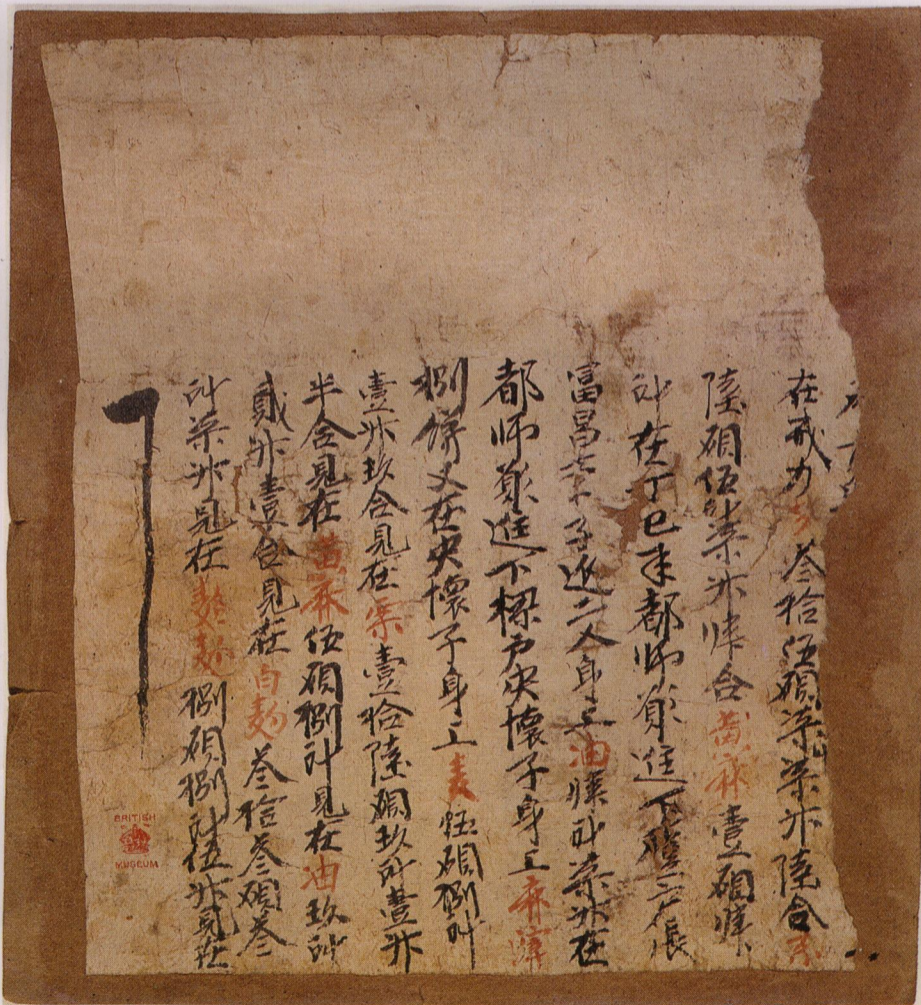 在戒力叁拾伍碩柒㪷柒升陸合
陸碩伍㪷柒升肆合黃麻壹碩肆
㪷在丁巳年都師願進下張
富昌子延二人身上油肆㪷柒升在
都師願進下梁戶史懷子身上麻滓
捌餅又在史懷子身上麦伍碩捌㪷
壹升玖合見在粟壹拾陸碩玖㪷壹升
半合見在黃麻伍碩捌㪷見在油玖㪷
貳升壹合見在白麫叁拾叁碩叁
㪷柒升見在麫捌碩捌㪷伍升見在
BRITISH
MUSEUM